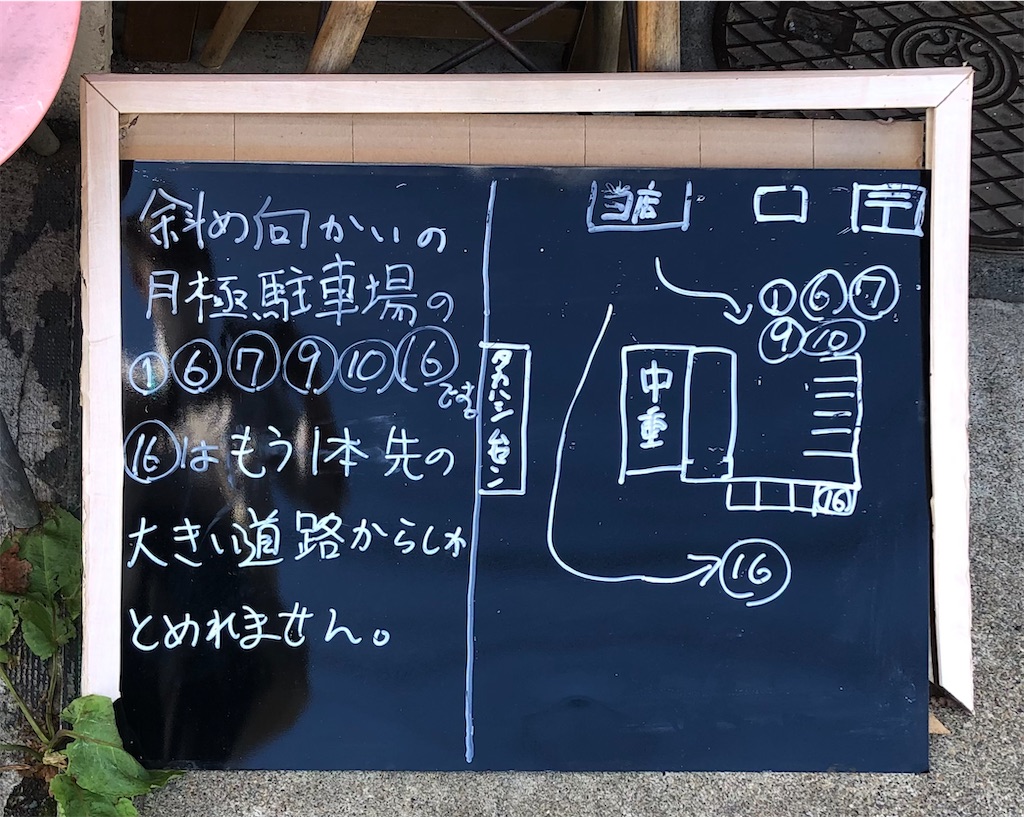 斜め向かいの
月極駐車場の
①⑥⑦⑨⑩⑯です。
⑯はもう1本先の
大きい道路からしか
とめれません。
タカハシ台ン
当店
〒
①⑥⑦
⑨⑩
中重
⑯
⑯